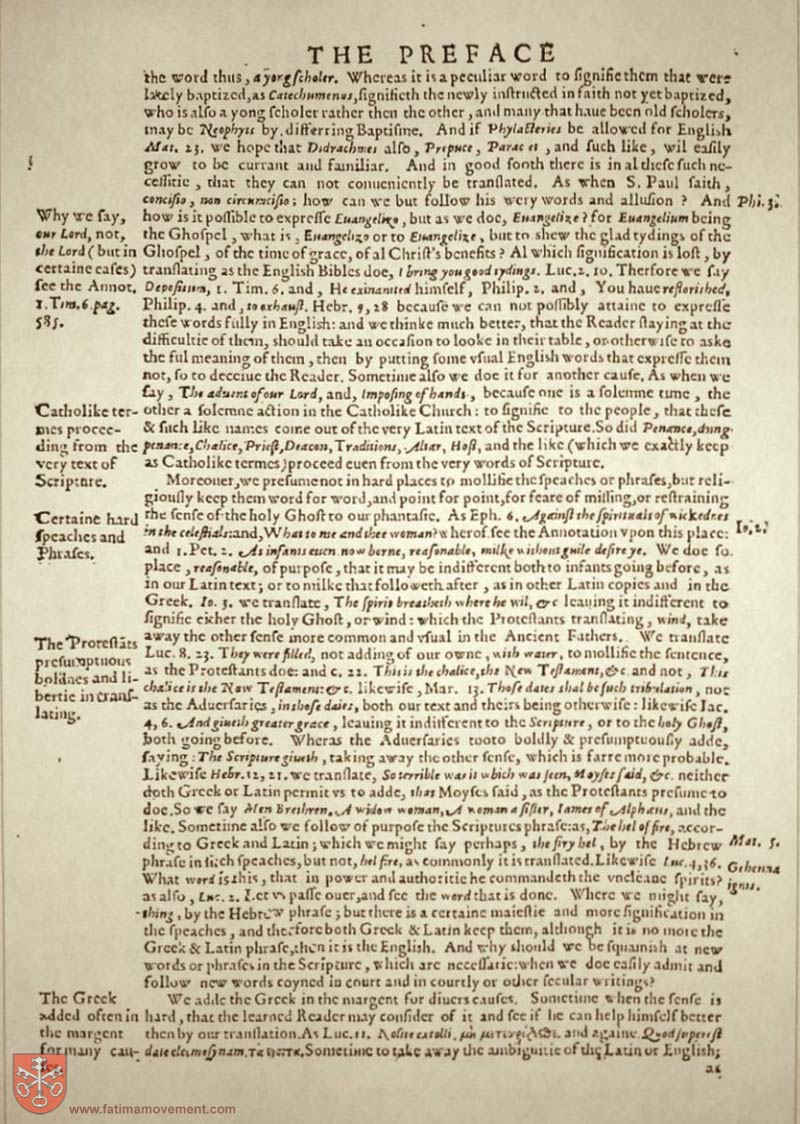 THE PREFACE
the word thus, a yong ſcholer. Whereas it is a peculiar word to ſignifie them that were
lately baptized, as Catechumenus, ſignifieth the newly inſtructed in faith not yet baptized,
who is alſo a yong ſcholer rather then the other, and many that haue been old ſcholers,
may be Neophyts by differring Baptiſme. And if Phylacteries be allowed for Engliſh
Mat. 23. we hope that Didrachmes alſo, Prepuce, Paraclet, and ſuch like, wil eaſily
grow to be currant and familiar. And in good ſooth there is in al theſe ſuch ne-
ceſſitie, that they can not conueniently be tranſlated. As when S. Paul ſaith,
conciſio, non circumciſio; how can we but follow his very words and alluſion? And
Phi. 3.
how is it poſſible to expreſſe Euangelizo, but as we doe, Euangelize? for Euangelium being
the Ghoſpel, what is, Euangelizo or to Euangelize, but to ſhew the glad tydings of the
Ghoſpel, of the time of grace, of al Chriſt's benefits? Al which ſignification is loſt, by
tranſlating as the Engliſh Bibles doe, I bring you good tydings. Luc. 2. 10. Therfore we ſay
Depoſitum, 1. Tim. 6. and, He exinanited himſelf, Philip. 2. and, You haue reflorished,
Philip. 4. and, to exhauſt. Hebr. 9, 28 becauſe we can not poſſibly attaine to expreſſe
theſe words fully in Engliſh: and we thinke much better, that the Reader ſtaying at the
difficultie of them, should take an occaſion to looke in their table, or otherwiſe to aske
the ful meaning of them, then by putting ſome vſual Engliſh words that expreſſe them
not, ſo to deceiue the Reader. Sometime alſo we doe it for another cauſe. As when we
ſay, The aduent of our Lord, and, Impoſing of hands, becauſe one is a ſolemne time, the
other a ſolemne action in the Catholike Church: to ſignifie to the people, that theſe
& ſuch like names come out of the very Latin text of the Scripture. So did Penance, doing
penance, Chalice, Prieſt, Deacon, Traditions, Altar, Hoſt, and the like (which we exactly keep
as Catholike termes) proceed euen from the very words of Scripture.
Why we ſay,
our Lord, not,
the Lord (but in
certaine caſes)
ſee the Annot.
1. Tim. 6. pag.
585.
Catholike ter-
mes procee-
ding from the
very text of
Scripture.
Moreouer, we preſume not in hard places to mollifie the ſpeaches or phraſes, but reli-
giouſly keep them word for word, and point for point, for feare of miſſing, or reſtraining
the ſenſe of the holy Ghoſt to our phantaſie. As Eph. 6. Againſt the ſpirituals of wickednes
in the celeſtials: and, What to me and thee woman? wherof ſee the Annotation vpon this place:
Io. 2.
and 1. Pet. 2. As infants euen now borne, reaſonable, milke without guile deſire ye. We doe ſo
place, reaſonable, of purpoſe, that it may be indifferent both to infants going before, as
in our Latin text; or to milke that followeth after, as in other Latin copies and in the
Greek. Io. 3. we tranſlate, The ſpirit breatheth where he wil, &c leauing it indifferent to
ſignifie either the holy Ghoſt, or wind: which the Proteſtants tranſlating, wind, take
away the other ſenſe more common and vſual in the Ancient Fathers. We tranſlate
Luc. 8. 23. They were filled, not adding of our owne, with water, to mollifie the ſentence,
as the Proteſtants doe: and c. 22. This is the chalice, the New Teſtament, &c. and not, This
chalice is the New Teſtament: &c. likewiſe, Mar. 13. Thoſe daies shal be ſuch tribulation, not
as the Aduerſaries, in thoſe daies, both our text and theirs being otherwiſe: likewiſe Iac.
4, 6. And giueth greater grace, leauing it indifferent to the Scripture, or to the holy Ghoſt,
both going before. Wheras the Aduerſaries tooto boldly & preſumptuouſly adde,
ſaying: The Scripture giueth, taking away the other ſenſe, which is farre more probable.
Likewiſe Hebr. 12, 21. we tranſlate, So terrible was it which was ſeen, Moyſes ſaid, &c. neither
doth Greek or Latin permit vs to adde, that Moyſes ſaid, as the Proteſtants preſume to
doe. So we ſay Men Brethren, A widow woman, A woman a ſiſter, Iames of Alphæus, and the
like. Sometime alſo we follow of purpoſe the Scriptures phraſe: as, The hel of fire, accor-
ding to Greek and Latin; which we might ſay perhaps, the firy hel, by the Hebrew
Mat. 5.
phraſe in ſuch ſpeaches, but not, hel fire, as commonly it is tranſlated. Likewiſe Luc. 4, 36.
Gehenna
ignis.
What word is this, that in power and authoritie he commandeth the vncleane ſpirits?
as alſo, Luc. 2. Let vs paſſe ouer, and ſee the word that is done. Where we might ſay,
thing, by the Hebrew phraſe; but there is a certaine maieſtie and more ſignification in
the ſpeaches, and therfore both Greek & Latin keep them, although it is no more the
Greek & Latin phraſe, then it is the Engliſh. And why should we be ſquamish at new
words or phraſes in the Scripture, which are neceſſarie: when we doe eaſily admit and
follow new words coyned in court and in courtly or other ſecular writings?
Certaine hard
ſpeaches and
Phraſes.
The Proteſtāts
preſumptuous
boldnes and li-
bertie in tranſ-
lating.
We adde the Greek in the margent for diuers cauſes. Sometime when the ſenſe is
hard, that the learned Reader may conſider of it and ſee if he can help himſelf better
then by our tranſlation. As Luc. 11. Nolite extolli, μὴ μετεωρίζεσθε. and againe Quod ſupereſt
date eleemoſynam, τὰ ἐνόντα. Sometime to take away the ambiguitie of the Latin or Engliſh;
as
The Greek
added often in
the margent
for many cau-
www.fatimamovement.com